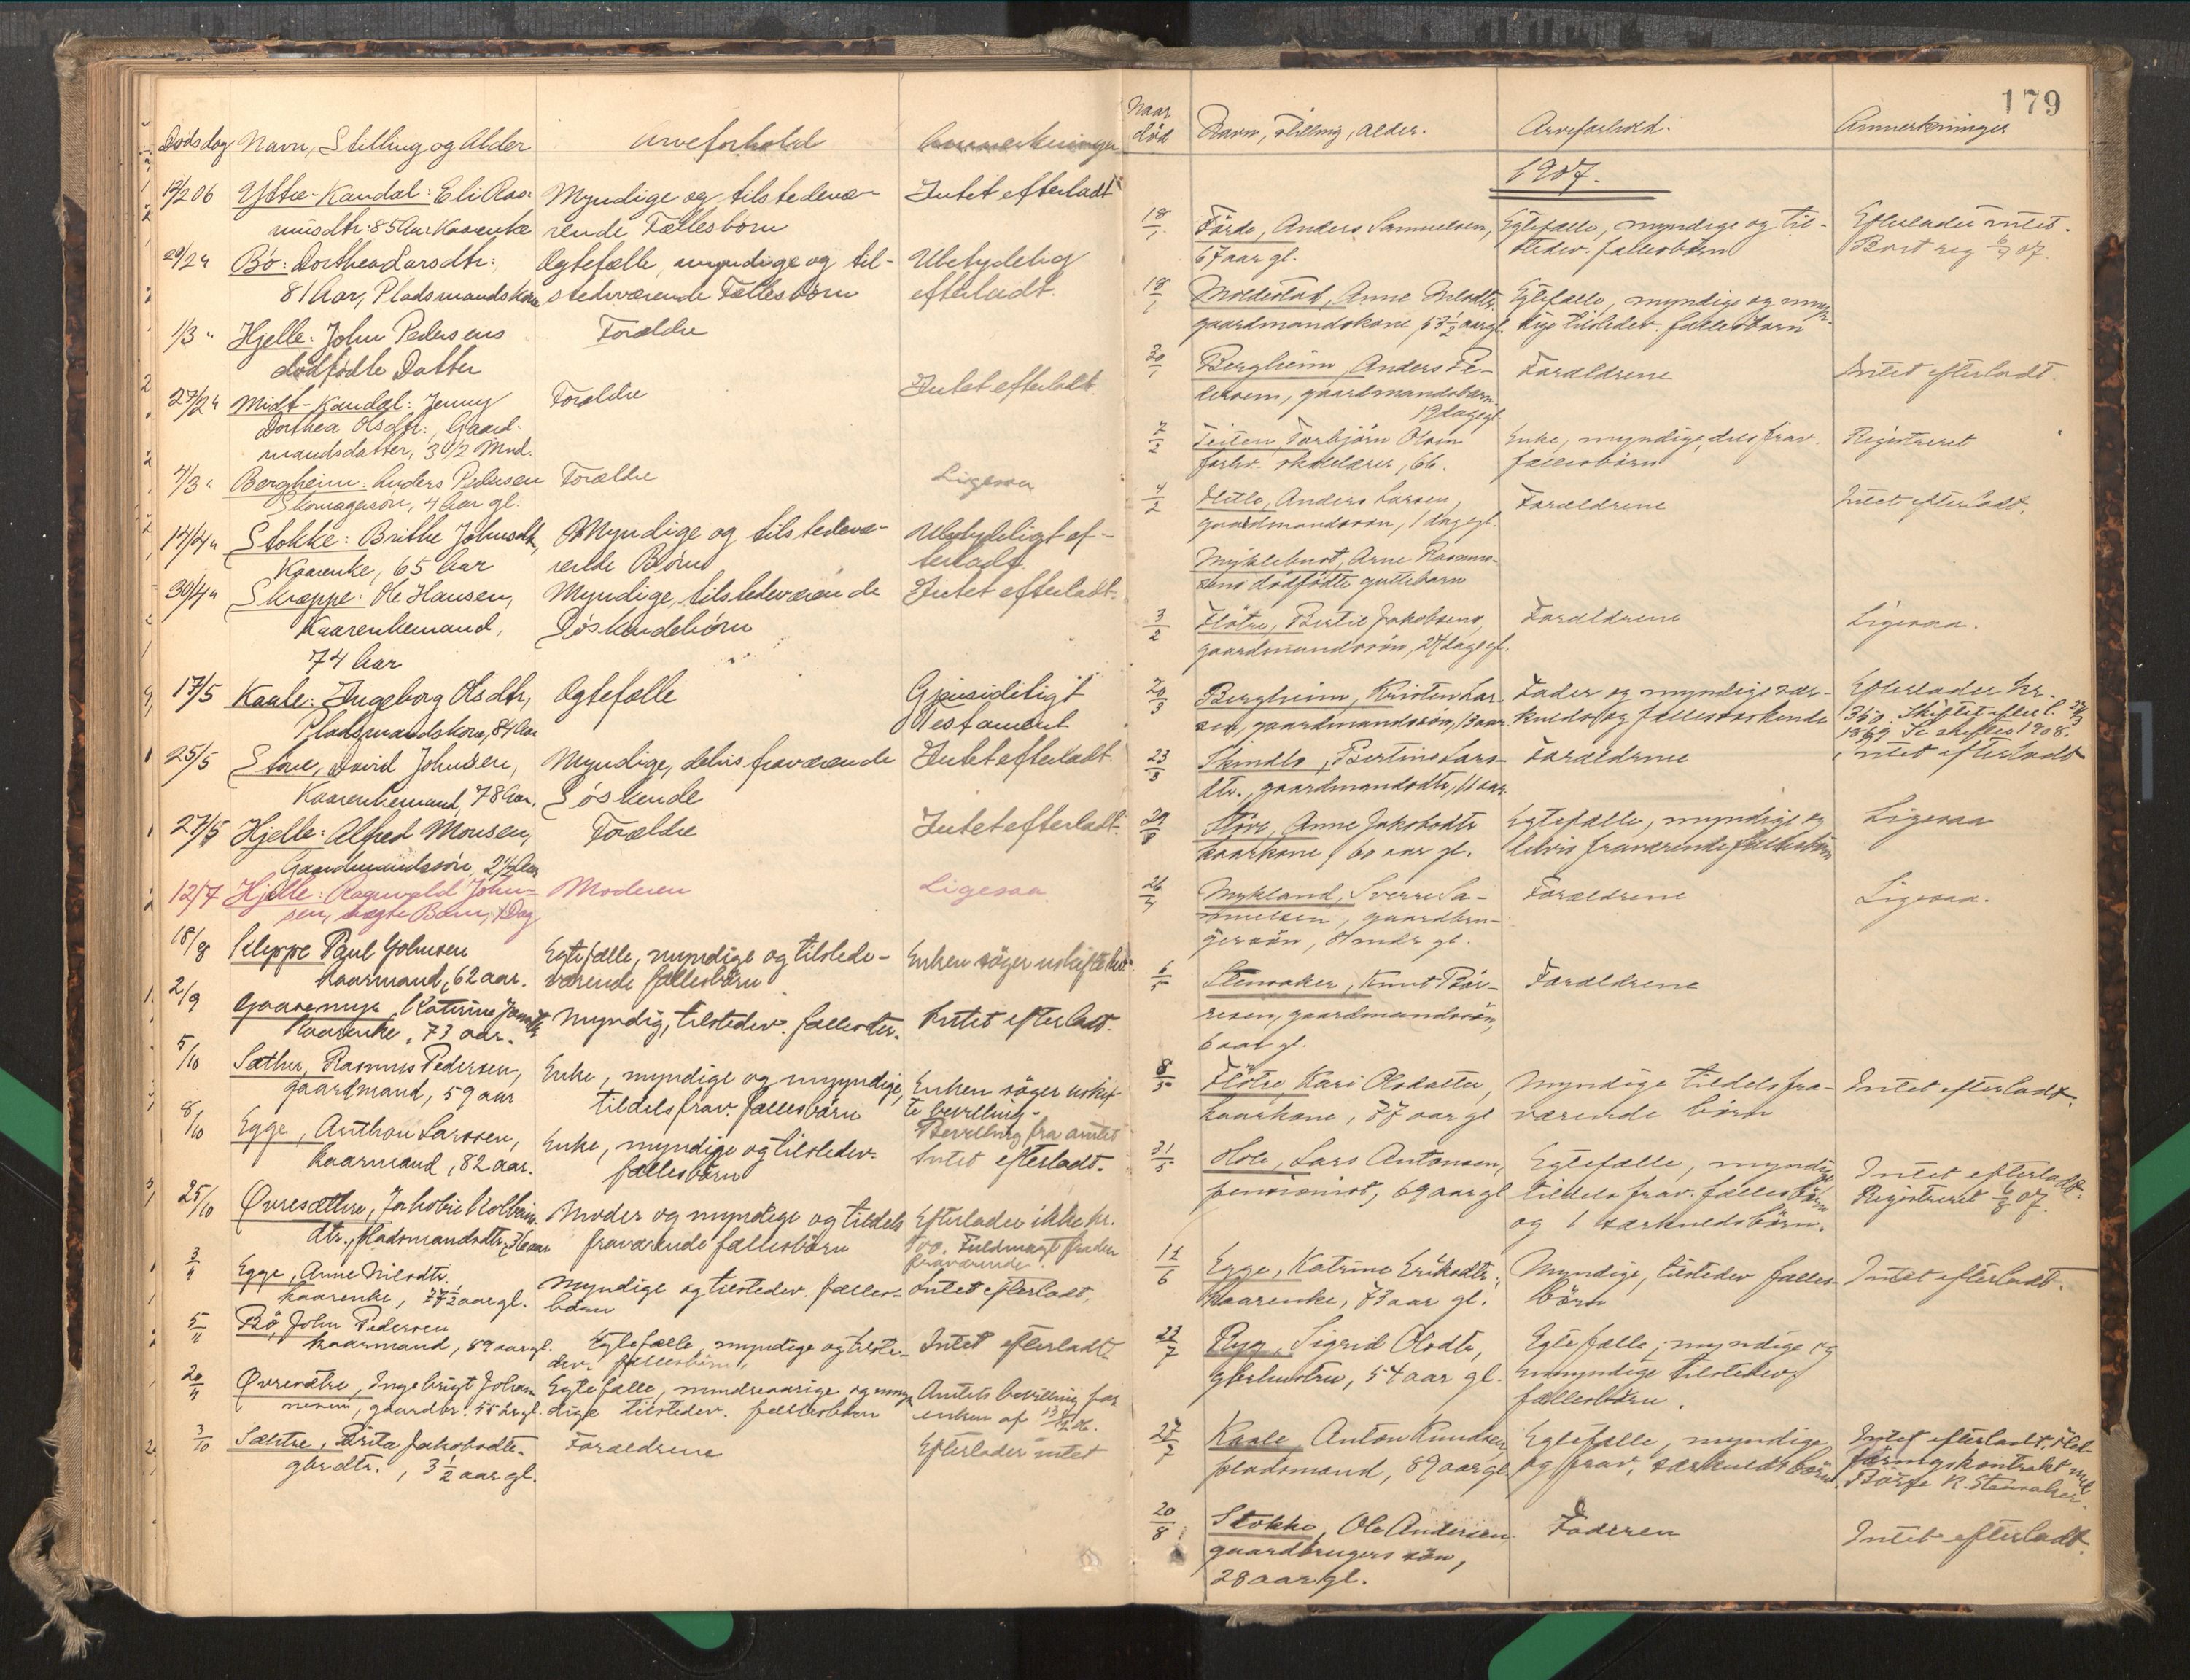 Dødsdag Navn, Stilling og Alder Arveforhold Anmerkninger
12/2 06 Ytre-Kandal: Eli Ras- Myndige og tilstedevæ- Intet efterladt
musdtr: 85 Aar Kaarenke rende Fællesbørn
20/2 " Bø: Dorthea Larsdtr: Ægtefælle, myndige og til- Ubetydelig
81 Aar, Pladsmandskone stedeværende Fællesbørn efterladt.
1/3 " Hjelle: John Pedersens Forældre
dødfødte Datter
27/2 " Midt-Kandal: Jenny Forældre Intet efterladt.
Dorthea Olsdtr:, Gaard-
mandsdatter, 3 1/2 Mnd.
4/3 " Bergheim: Anders Pedersen Forældre Ligesaa
Skomagersøn, 4 Aar gl.
14/4 " Stokke: Brithe Johnsdtr, Myndige og tilstedevæ- Ubetydeligt ef-
Kaarenke, 65 Aar rende Børn terladt.
30/4 " Skreppe: Ole Hansen, Myndige, tilstedeværende Intet efterladt.
Kaarenkemand, Søskendebørn
74 Aar
17/5 Kaale: Ingeborg Olsdtr, Ægtefælle Gjensidetigt
Pladsmandskone, 84 Aar Testament
25/5 Støve, David Johnsen, Myndige, delvis fraværende Intet efterladt.
Kaarenkemand, 78 Aar. Søskende
27/5 Hjelle: Alfred Monsen, Forældre Intet efterladt.
Gaardmandssøn, 2 1/2 Aar
12/7 Hjelle: Ragnvald John- Moderen Ligesaa
sen, uægte Barn, 1 Dag
18/8 Kleppe Paul Johnsen Egtefælle, myndige og tilstede- Enken søger uskiftet
kaarmand, 62 aar. værende fællesbørn
2/9 Gaaremyr, Katrine Myndig, tilstedev. fællesdtr. Intet efterladt.
Kaarenke, 73 aar.
5/10 Sæther, Rasmus Pedersen, Enke, myndige og umyndige, Enken søger uskif-
gaardmand, 59 aar tildels frav. fællesbørn te bevilling-
Bevilling fra amtet
8/10 Egge, Anthon Larssen, Enke, myndige og tilstedev. Intet efterladt.
kaarmand, 82 aar. fællesbørn
25/10 Øvresæthre, Jakobie Kolbeins- Moder og myndige og tildels Efterlader ikke kr.
dtr., pladsmandsdtr, 36 aar fraværende fællesbørn 500. Fuldmagt fra den
fraværende.
3/9 Egge, Anne Nilsdtr. Myndige og tilstedev. fælles- Intet efterladt,
kaarenke, 77 1/2 aar gl. børn
5/11 Bø, John Pedersen
kaarmand, 89 aar gl. Egtefælle, myndige og tilste- Intet efterladt
dev. fællesbørn,
20/11 Øvresætre, Ingebrigt Johan- Egtefælle, mindreaarige og myn- Amtets bevilling for
nesen, gaardbr. 55 år gl. dige tilstedev. fællesbørn enken af 13/12 06.
3/10 Sætre, Brita Jakobsdtr. Forældrene Efterlader intet
gbrdtr., 3 1/2 aar gl.
179
Naar
død Navn, stilling, alder. Arveforhold. Anmerkninger
1907.
18/1 Førde, Anders Samuelsen, Egtefælle, myndige og til- Efterlader intet.
67 aar gl. stedev. fællesbørn Bort reg 07.
18/1 Moldestad, Anne Nilsdtr. Egtefælle, myndige og umyn-
gaardmandskone, 53 1/2 aar gl. dige tilstedev. fællesbørn
30/1 Bergheim, Anders Pe- Forældrene Intet efterladt.
dersen, gaardmandsbarn,
19 dage gl.
7/2 Teiten, Torbjørn Olsen Enke, myndige, dels frav. Registreret
forhv. skolelærer, 66. fællesbørn
4/2 Hetle, Anders Larsen, Forældrene Intet efterladt.
gaardmandssøn, 1 dag gl.
Myklebust, Arne Rasmus-
sens dødfødte guttebarn
3/2 Fløtre, Bertil Jakobsens, Forældrene Ligesaa.
gaardmandssøn, 24 dage gl.
20/3 Bergheim, Kristen Lar- Fader og myndige sær- Efterlader kr.
sen, gaardmandssøn, 13 aar kulds og fællessøskende 350. Skiftet efterl. 27/3
1869 Se skiftet 1908.
23/3 Skindlo, Bertine Lars- Forældrene Intet efterladt
dtr., gaardmandsdtr, 11 aar
29/8 Støve, Anne Jakobsdtr Egtefælle, myndige og Ligesaa
kaarkone, 60 aar gl. delvis fraværende fællesbørn
26/4 Mykland, Sverre Sa- Forældrene Ligesaa.
muelsen, gaardbru-
gersøn, 8 mdr gl.
6/5 Stenaaker, Knut Bør- Forældrene
resen, gaardmandssøn,
6 aar gl.
8/5 Fløtre, Kari Olsdatter, Myndige tildels fra- Intet efterladt.
kaarkone, 77 aar gl værende børn
31/5 Hole, Lars Antonsen, Egtefælle, myndige Intet efterladt.
pensionist, 69 aar gl tildels frav. fællesbørn Registreret 6/8 07.
og 1 særkuldsbørn.
12/6 Egge, Katrine Eriksdtr., Myndige, tilstedev fælles- Intet efterladt.
kaarenke, 73 aar gl. børn
23/7 Ryg, Sigrid Olsdtr, Egtefælle, myndige og
gbrhustru, 54 aar gl. umyndige tilstedev.
fællesbørn.
27/7 Kaale, Anton Knudsen, Egtefælle, myndige Intet efterladt. Flet-
pladsmand, 89 aar gl. og frav. særkuldsbørn. føringskontrakt med
Børge K. Stenaker.
20/8 Stokke, Ole Andersen, Faderen Intet efterladt.
gaardbrugers søn,
28 aar gl.